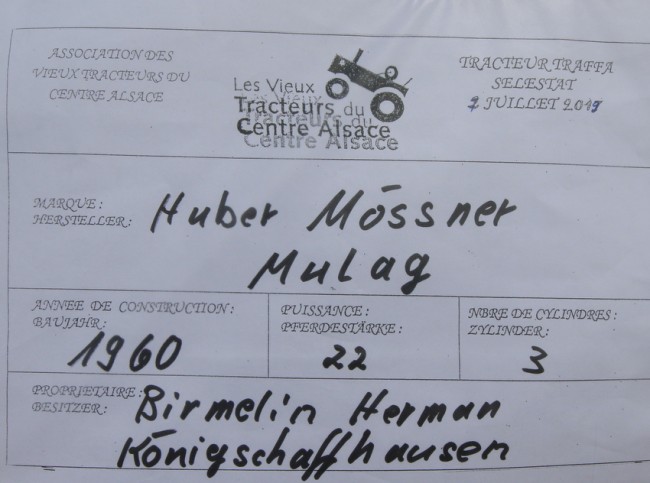 ASSOCIATION DES
VIEUX TRACTEURS DU
CENTRE ALSACE
Les Vieux
Tracteurs du
Centre Alsace
TRACTEUR TRAFFA
SELESTAT
7 JUILLET 2019
MARQUE :
HERSTELLER :
Huber Mössner
Mulag
ANNEE DE CONSTRUCTION :
BAUJAHR :
1960
PUISSANCE :
PFERDESTÄRKE :
22
NBRE DE CYLINDRES :
ZYLINDER :
3
PROPRIETAIRE :
BESITZER :
Birmelin Herman
Königschaffhausen